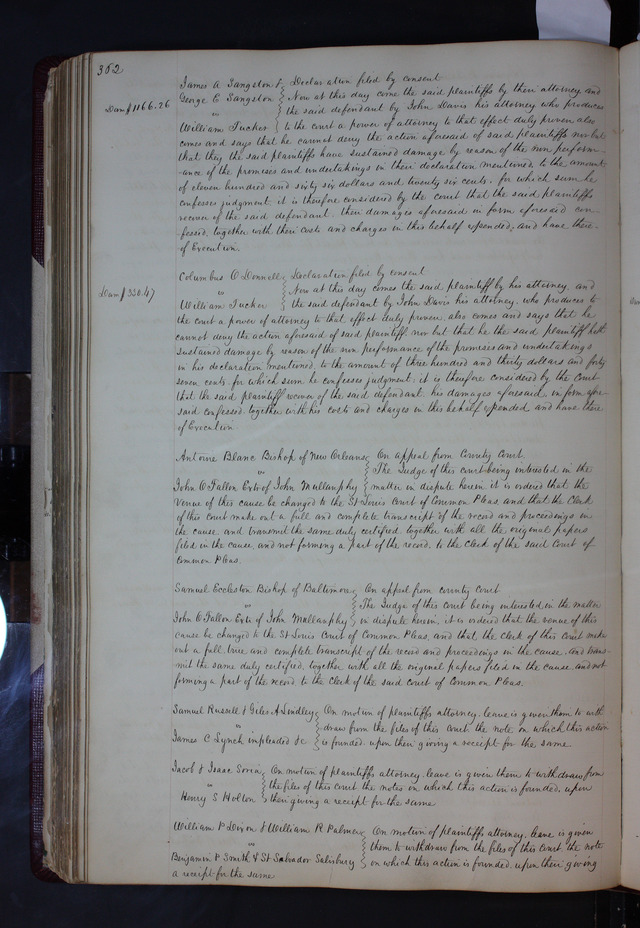 362
James A Sangston & } Declaration filed by consent
George E Sangston } Now at this day come the said plaintiffs by their attorney and
Dam $1166.26 vs } the said defendant by John Davis his attorney who produces
William Tucker } to the court a power of attorney to that effect duly proven also
comes and says that he cannot deny the action aforesaid of said plaintiffs nor but
that they the said plaintiffs have sustained damage by reason of the non perform-
-ance of the promises and undertakings in their declaration mentioned to the amount
of eleven hundred and sixty six dollars and twenty six cents. for which sum he
confesses judgment. it is therefore considered by the court that the said plaintiffs
recover of the said defendant their damages aforesaid in form aforesaid con-
fessed, together with their costs and charges in this behalf expended, and have there-
of Execution.
Columbus O Donnell } Declaration filed by consent
vs } Now at this day comes the said plaintiff by his attorney, and
Dam $330.47 William Tucker } the said defendant by John Davis his attorney, who produces to
the court a power of attorney to that effect duly proven, also comes and says that he
cannot deny the action aforesaid of said plaintiff nor but that he the said plaintiff hath
sustained damage by reason of the non performance of the promises and undertakings
in his declaration mentioned, to the amount of three hundred and thirty dollars and forty
seven cents, for which sum he confesses judgment; it is therefore considered by the Court
that the said plaintiff recover of the said defendant, his damages aforesaid, in form afore-
said confessed, together with his costs and charges in this behalf expended and have there
of Execution
Antoine Blanc Bishop of New Orleans } On appeal from County Court.
vs } The Judge of this court being interested in the
John O'Fallon Extr of John Mullanphy } matter in dispute herein it is ordered that the
venue of this cause be changed to the St Louis Court of Common Pleas, and that the Clerk
of this court make out a full and complete transcript of the record and proceedings in
the cause and transmit the same duly certified together with all the original papers
filed in the cause, and not forming a part of the record, to the Clerk of the said Court of
Common Pleas.
Samuel Eccleston Bishop of Baltimore } On appeal from county court
vs } The Judge of this court being interested in the matter
John O'Fallon Extr of John Mullanphy } in dispute herein, it is ordered that the venue of this
cause be changed to the St Louis Court of Common Pleas, and that the clerk of this Court make
out a full, true and complete transcript of the record and proceedings in the cause, and trans-
mit the same duly certified, together with all the original papers filed in the cause, and not
forming a part of the record to the Clerk of the said court of Common Pleas.
Samuel Russell & Giles A Lindley } On motion of plaintiffs attorney, leave is given them to with
vs } draw from the files of this court the note, on which this action
James C Lynch impleaded &c } is founded, upon their giving a receipt for the same
Jacob & Isaac Sorin } On motion of plaintiffs attorney, leave is given them to withdraw from
vs } the files of this court the notes on which this action is founded, upon
Henry S Holton } their giving a receipt for the same
William P Dixon & William R Palmer } On motion of plaintiffs attorney, leave is given
vs } them to withdraw from the files of this Court, the note
Benjamin F Smith & St Salvador Salisbury } on which this action is founded, upon their giving
a receipt for the same